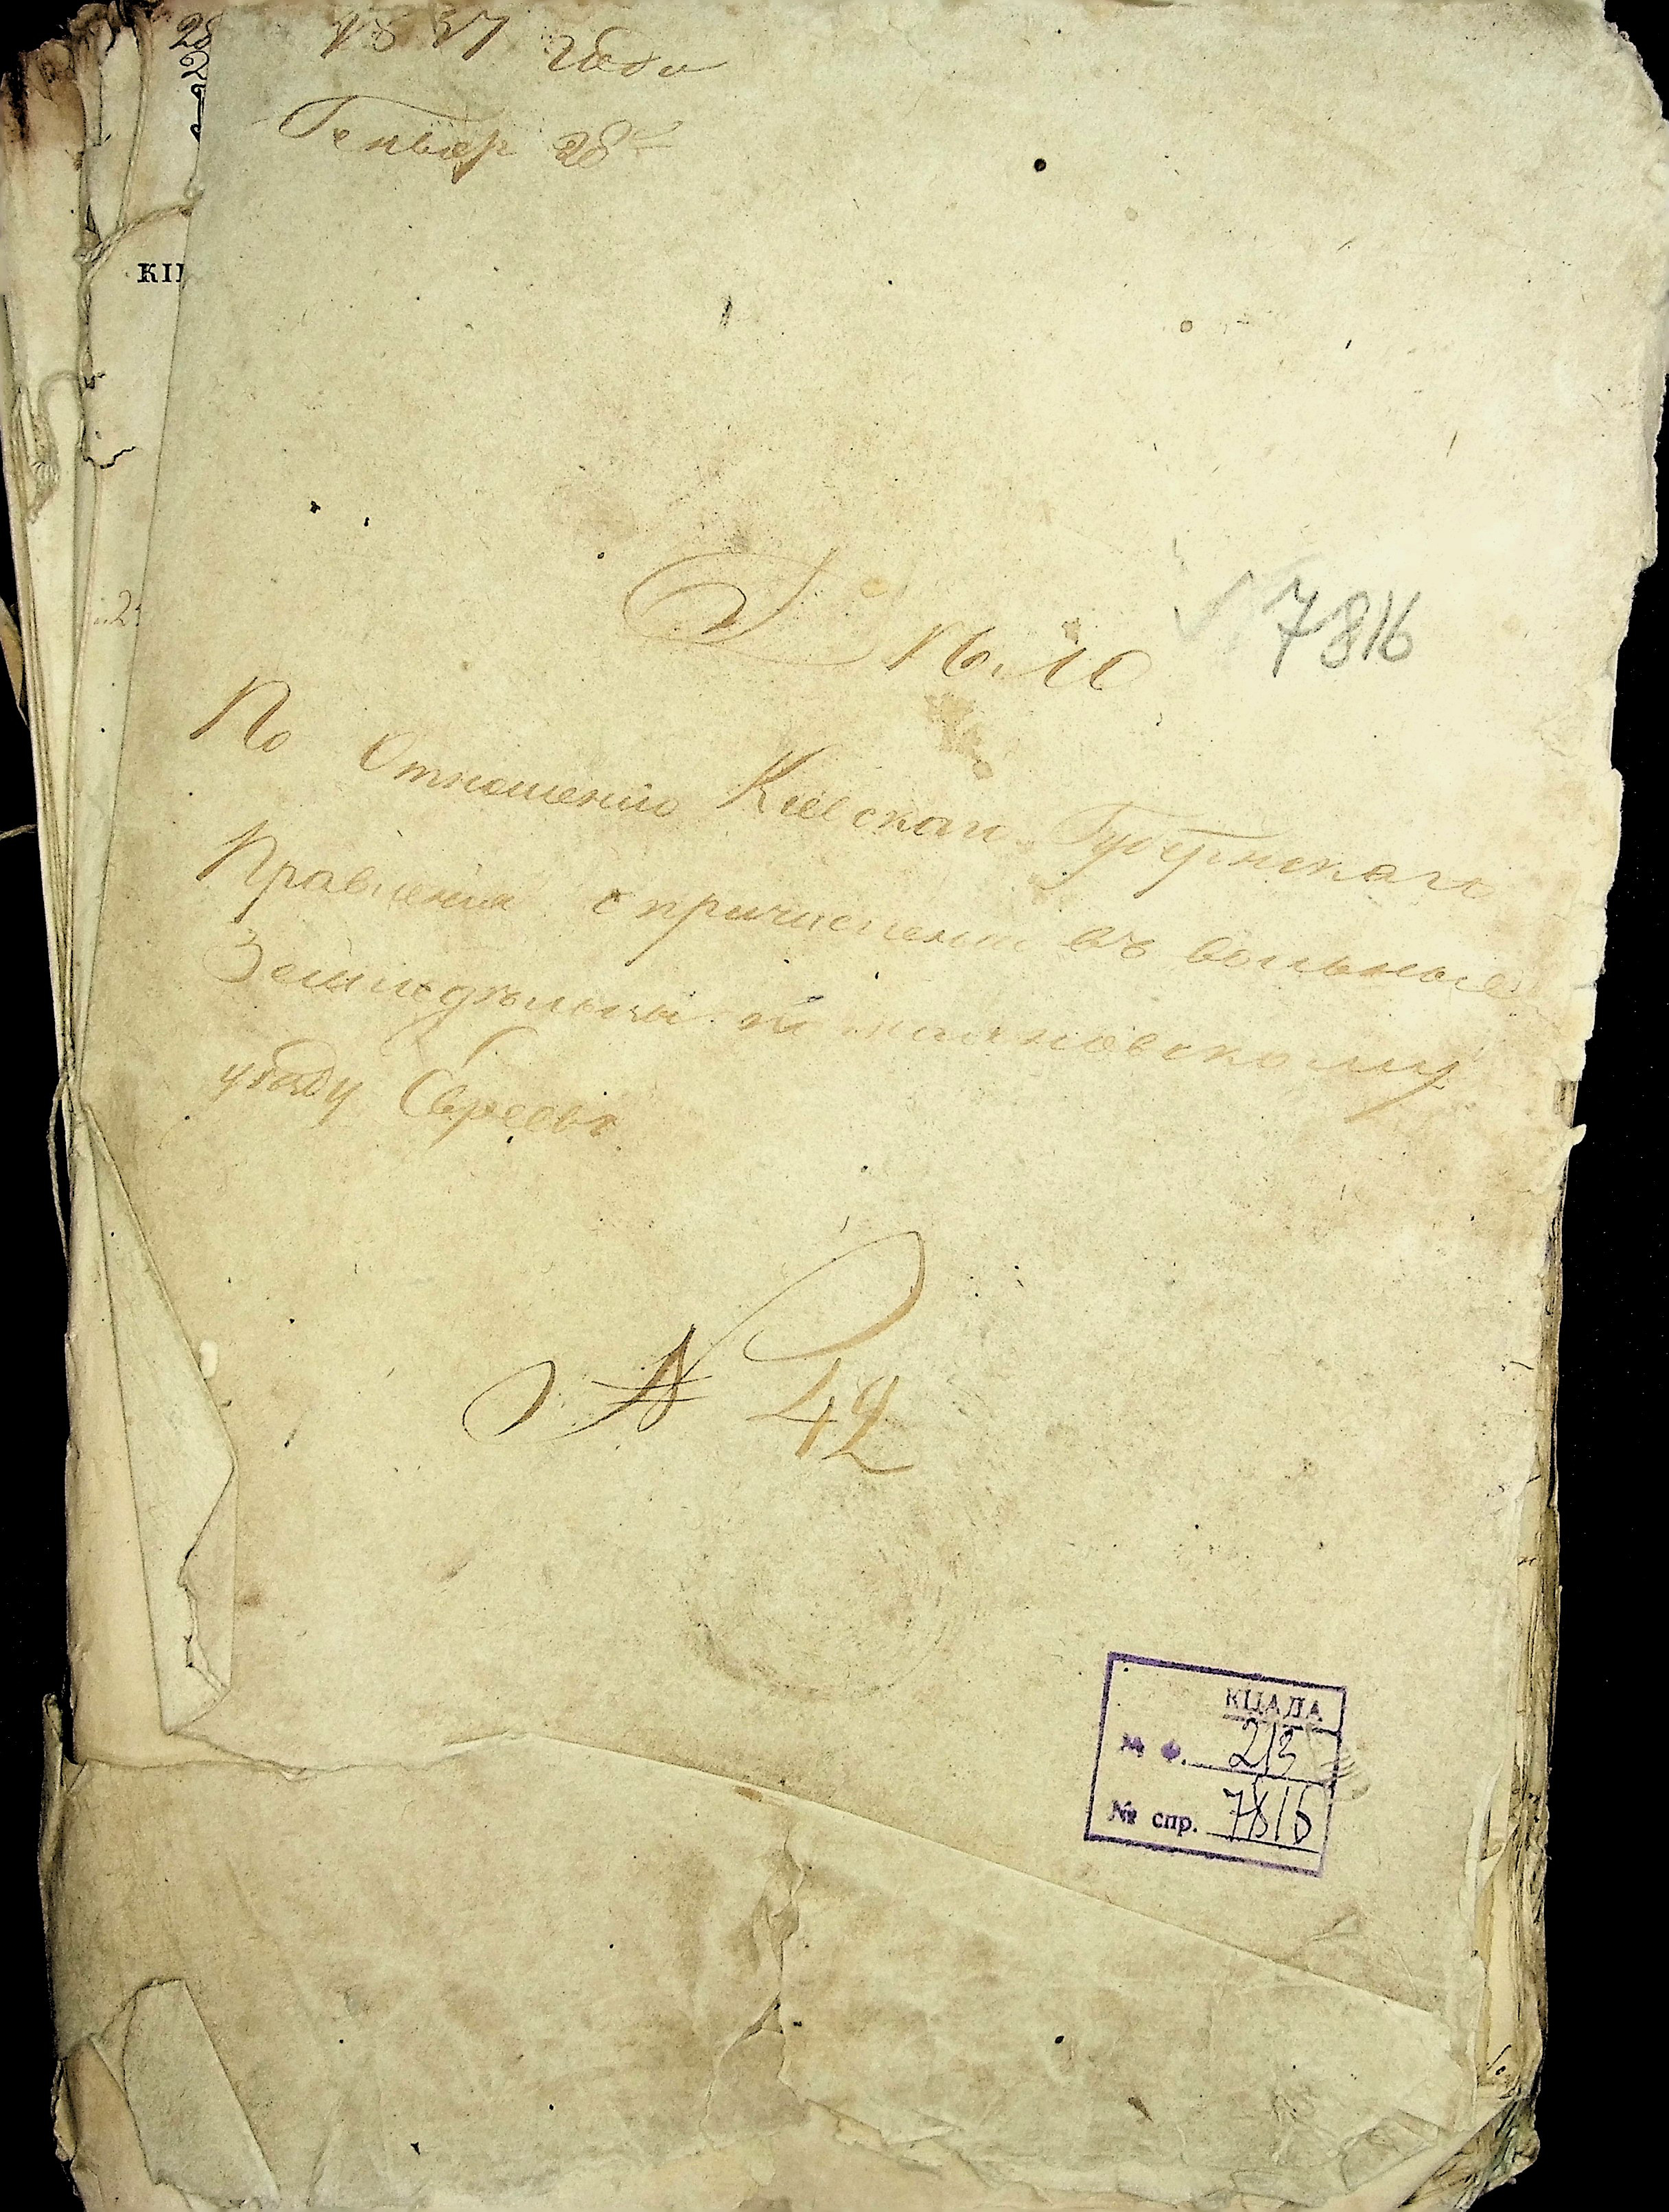 28
2
1837 года
Генвар 28
КІЕ
Дѣло
7816
По Отношенію Кіевскаго Губернскаго
Правленія о причисленіи въ вольные
Земледѣльцы къ
уѣзду Евреевъ
№ 42
КЦАДА
№ Ф. 213
№ спр. 7816